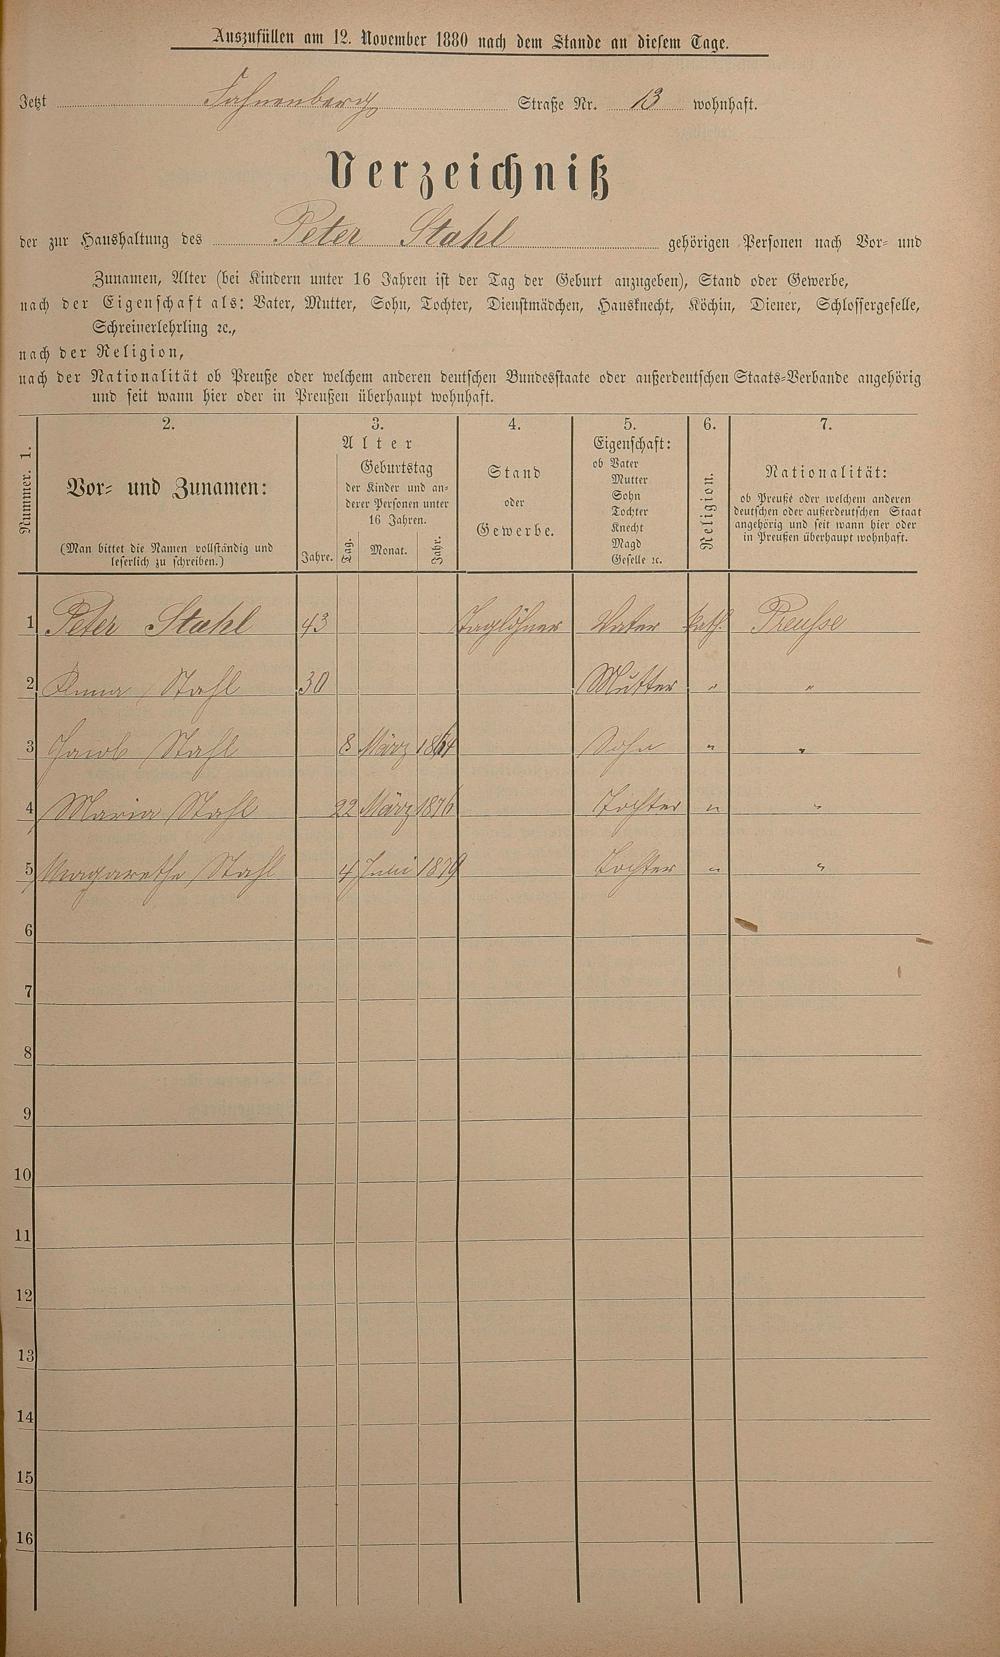 Auszufüllen am 12. November 1880 nach dem Stande an diesem Tage.
Jetzt Fahnenberg Straße Nr. 13 wohnhaft.
Verzeichniß
der zur Haushaltung des Peter Stahl gehörigen Personen nach Vor- und
Zunamen, Alter (bei Kindern unter 16 Jahren ist der Tag der Geburt anzugeben), Stand oder Gewerbe,
nach der Eigenschaft als: Vater, Mutter, Sohn, Tochter, Dienstmädchen, Hausknecht, Köchin, Diener, Schlossergeselle,
Schreinerlehrling ꝛc.,
nach der Religion,
nach der Nationalität ob Preuße oder welchem anderen deutschen Bundesstaate oder außerdeutschen Staats-Verbande angehörig
und seit wann hier oder in Preußen überhaupt wohnhaft.
Nummer. 1.
2.
Vor- und Zunamen:
(Man bittet die Namen vollständig und
leserlich zu schreiben.)
3.
Alter
Jahre.
Geburtstag
der Kinder und an-
derer Personen unter
16 Jahren.
Tag. Monat. Jahr.
4.
Stand
oder
Gewerbe.
5.
Eigenschaft:
ob Vater
Mutter
Sohn
Tochter
Knecht
Magd
Geselle ꝛc.
6.
Religion.
7.
Nationalität:
ob Preuße oder welchem anderen
deutschen oder außerdeutschen Staat
angehörig und seit wann hier oder
in Preußen überhaupt wohnhaft.
1 Peter Stahl 43 Taglöhner Vater kath. Preusse
2 Anna Stahl 30 Mutter " "
3 Jacob Stahl 8 März 1864 Sohn " "
4 Maria Stahl 22 März 1876 Tochter " "
5 Margarethe Stahl 4 Juni 1879 Tochter " "
6
7
8
9
10
11
12
13
14
15
16